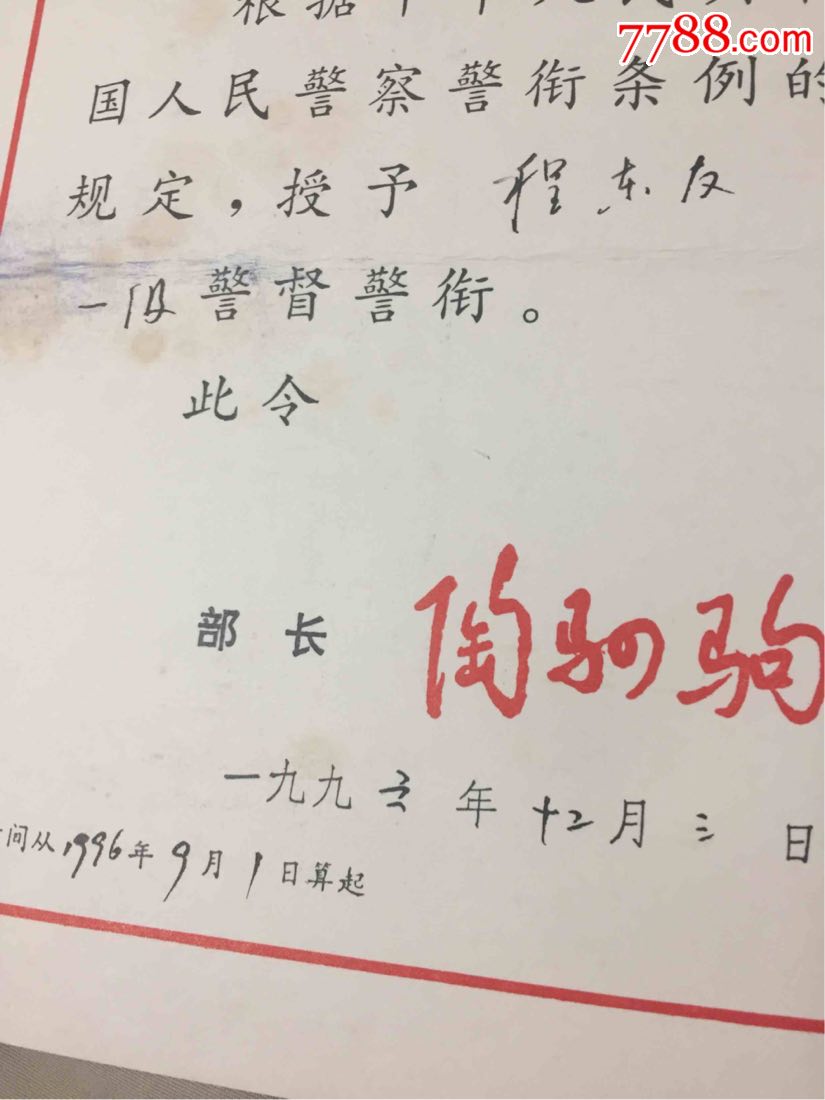 7788.com
根据中华人民共和
国人民警察警衔条例的
规定，授予 程东友
一级警督警衔。
此令
部长 陶驷驹
一九九六年十二月三日
间从1996年9月1日算起